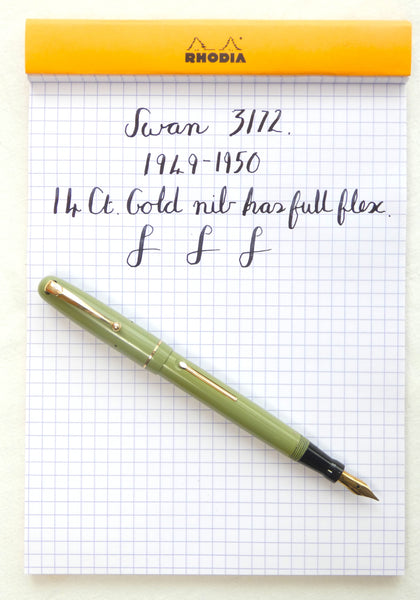 RHODIA
Swan 3172.
1949-1950
14 Ct. Gold nib has full flex.
f f f